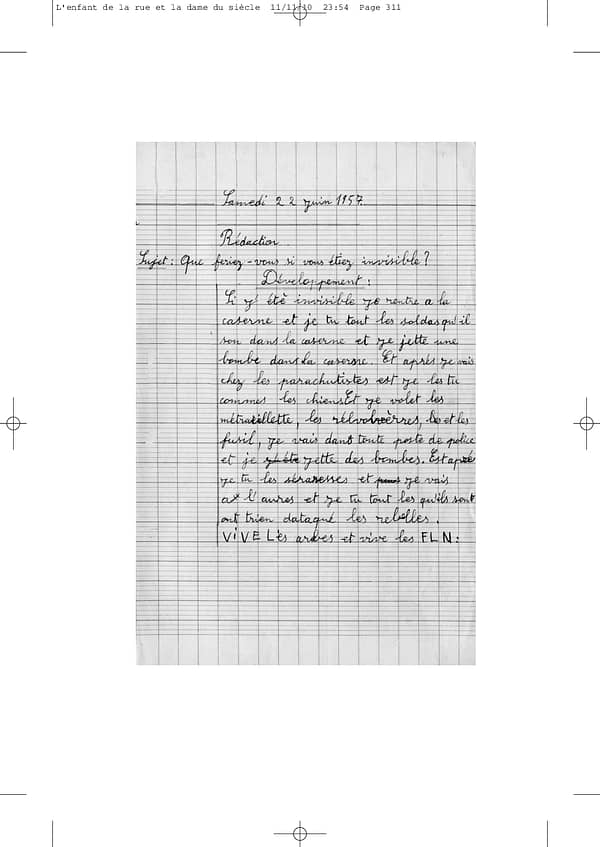 L'enfant de la rue et la dame du siècle 11/11/10 23:54 Page 311
Samedi 22 juin 1957.
Rédaction
Sujet : Que feriez-vous si vous étiez invisible ?
Développement :
Si y' étè invisible ye rentre a la
caserne et je tu tout les soldas qu'il
son dans la caserne et ye jette une
bombe dans la caserne. Et après ye vais
chez les parachutistes est ye les tu
commes les chiens Et ye volet les
métraillette, les rélvolvèrres, et les
fusil, ye vais dans toute poste de police
et je yette des bombes. Est aprés
ye tu les et ye vais
a l'aures et ye tu tout les qu'ils sont
ont trien dataqué les rebelles.
ViVE Lès arabes et vive les FLN :